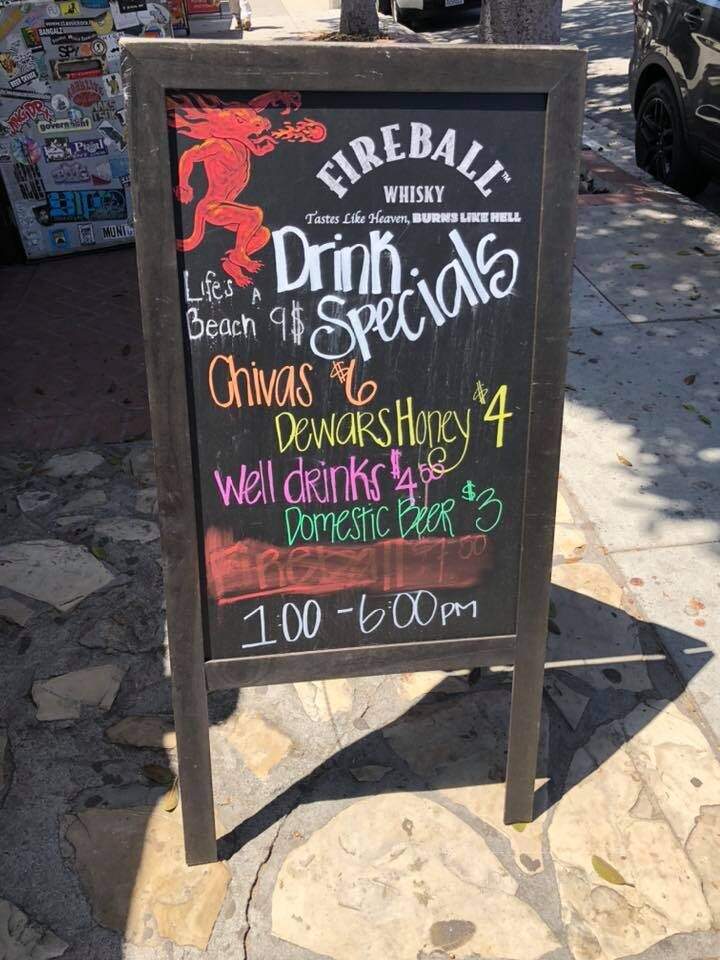 FIREBALL™
WHISKY
Tastes Like Heaven, BURNS LIKE HELL
Drink
Specials
Life's A
Beach 9$
Chivas $6
Dewars Honey $4
Well drinks $4.50
Domestic Beer $3
Fireball
1:00 - 6:00 PM
BANGALZ
SPY
government